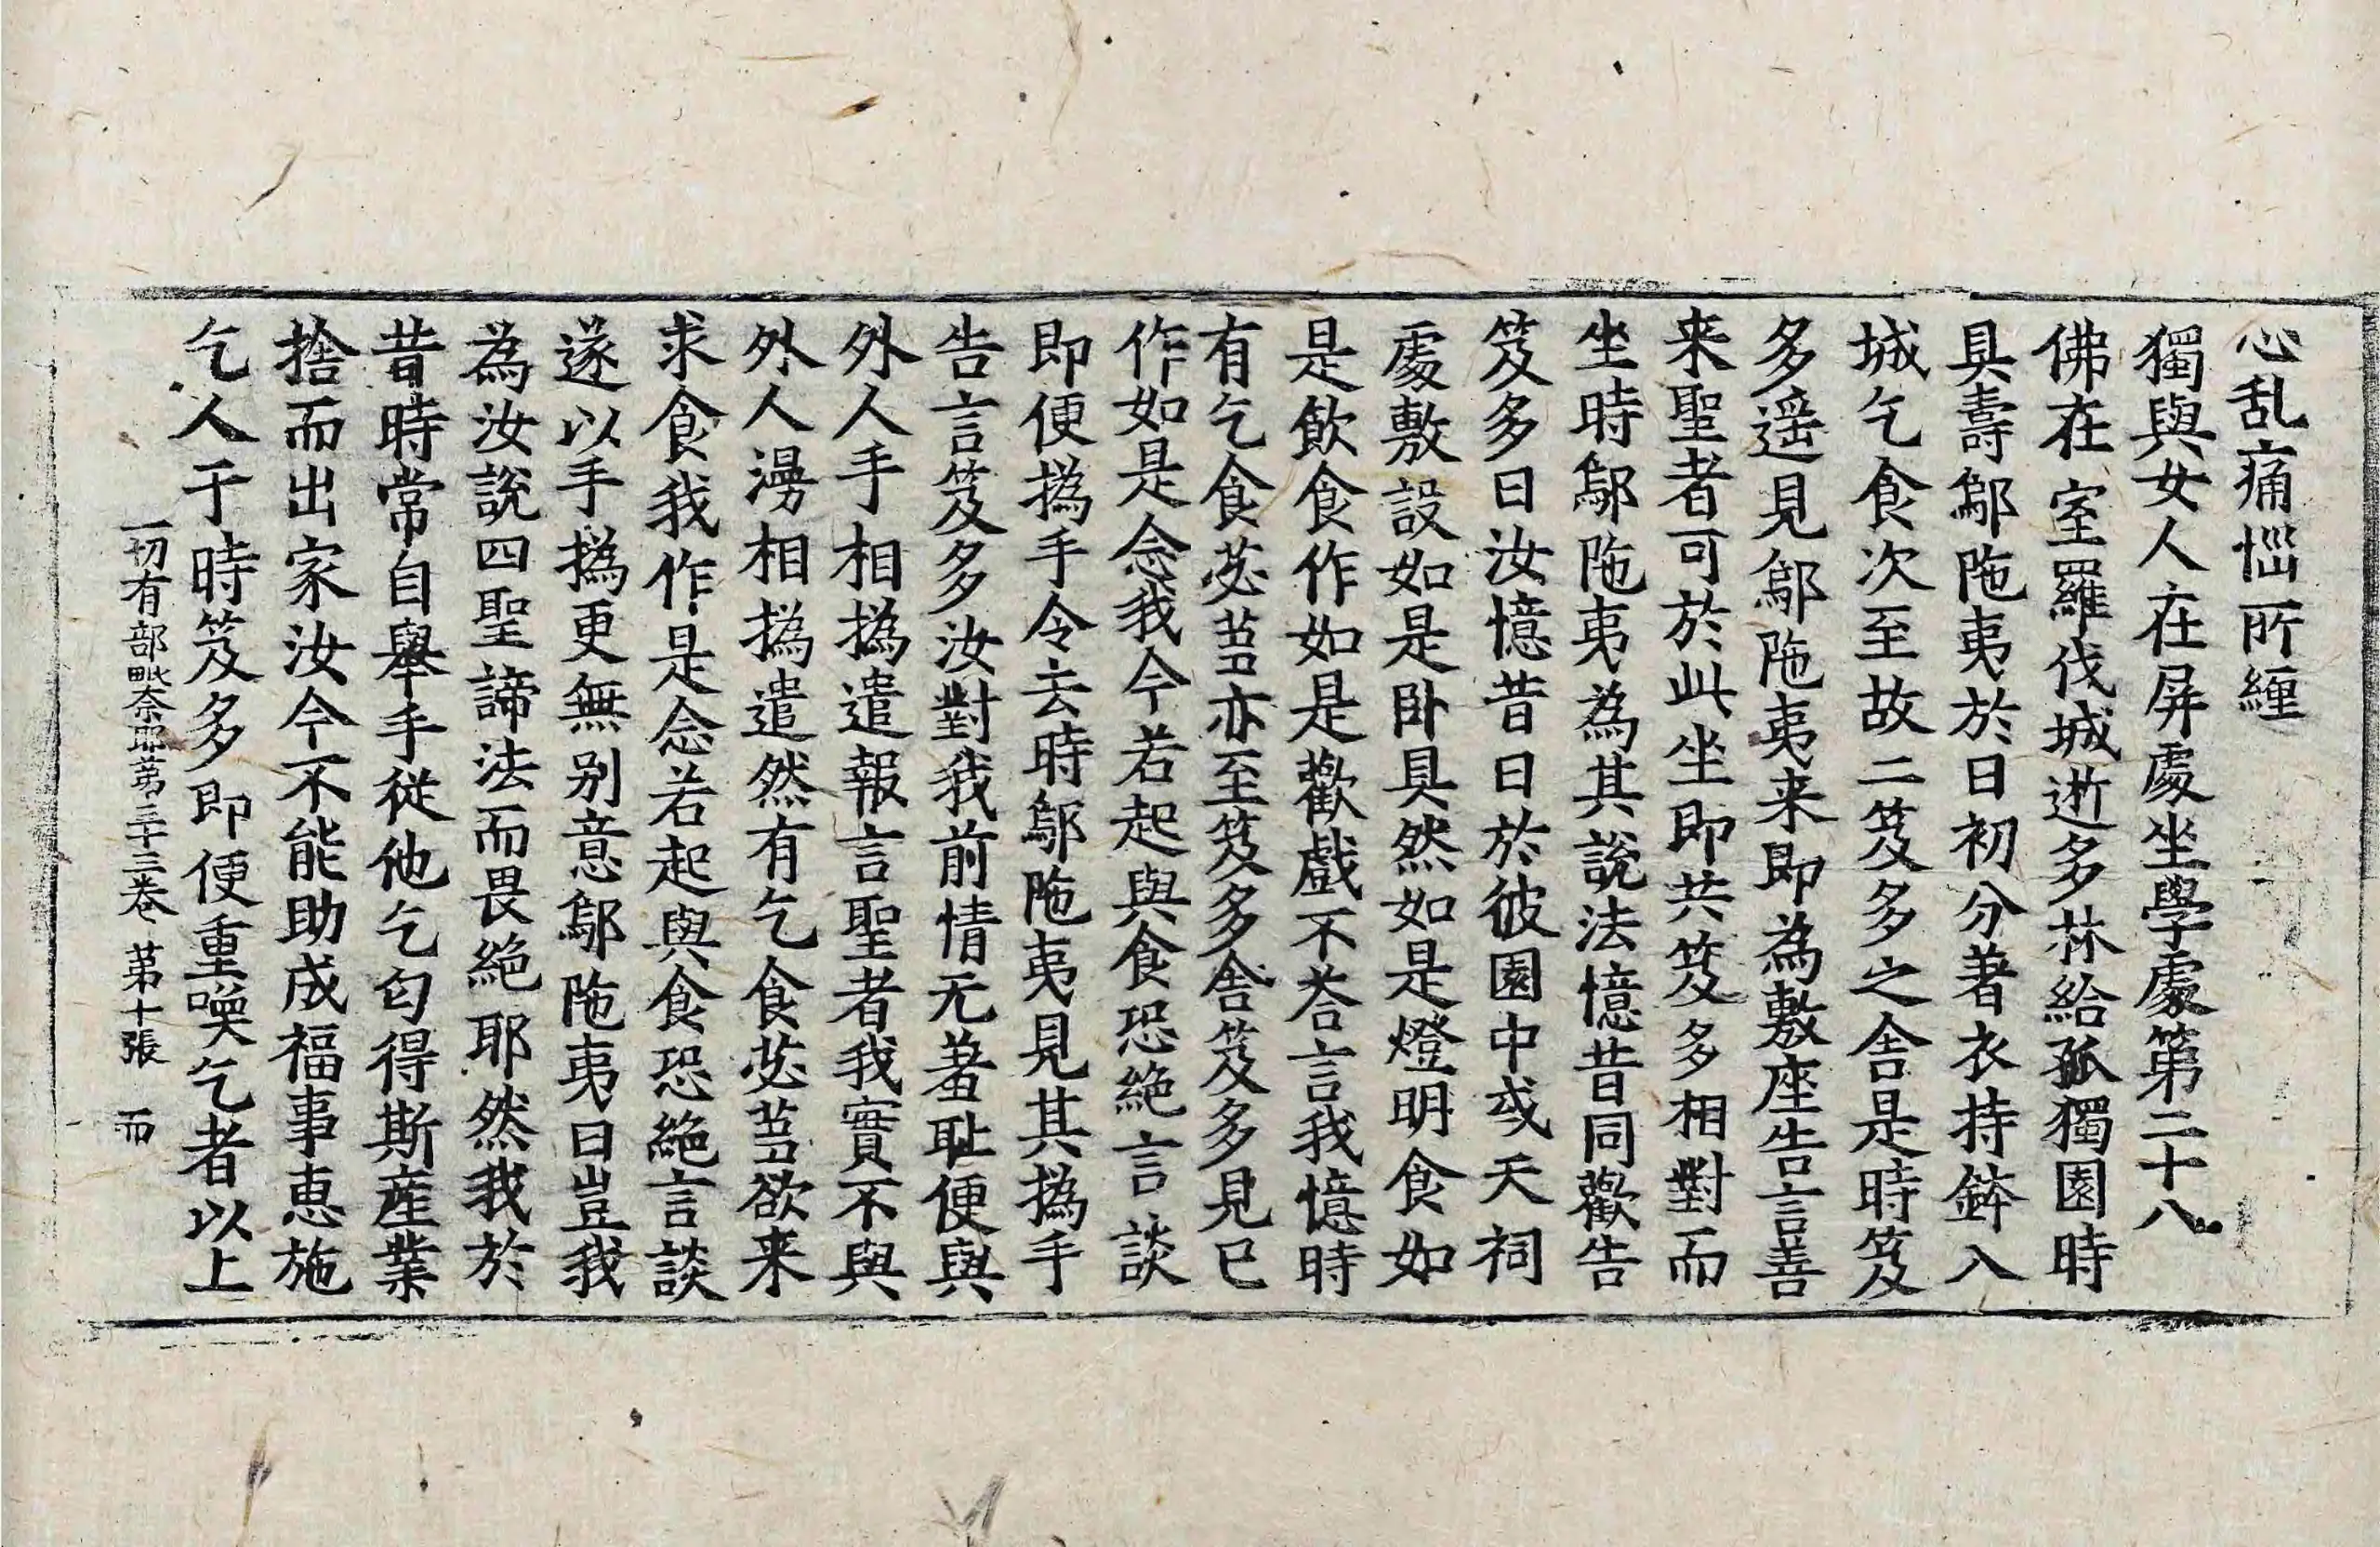 心乱痛惱所纏
獨與女人在屏處坐學處第二十八
佛在室羅伐城逝多林給孤獨園時
具壽鄔陁夷於日初分著衣持鉢入
城乞食次至故二笈多之舍是時笈
多遥見鄔陁夷来即為敷座告言善
来聖者可於此坐即共笈多相對而
坐時鄔陁夷為其說法憶昔同歡告
笈多曰汝憶昔日於彼園中或天祠
處敷設如是卧具然如是燈明食如
是飲食作如是歡戲不荅言我憶時
有乞食苾芻亦至笈多舍笈多見已
作如是念我今若起與食恐絶言談
即便撝手令去時鄔陁夷見其撝手
告言笈多汝對我前情无羞耻便與
外人手相撝遣報言聖者我實不與
外人漫相撝遣然有乞食苾芻欲来
求食我作是念若起與食恐絶言談
遂以手撝更無别意鄔陁夷曰豈我
為汝說四聖諦法而畏絶耶然我於
昔時常自舉手從他乞匃得斯產業
捨而出家汝今不能助成福事恵施
乞人于時笈多即便重喚乞者以上
一切有部毗奈耶第三十三卷 第十張 而